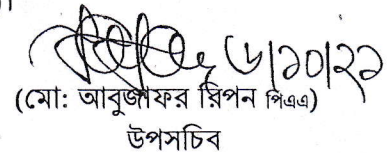 ৬/১০/২১
(মো: আবুজাফর রিপন পিএএ)
উপসচিব